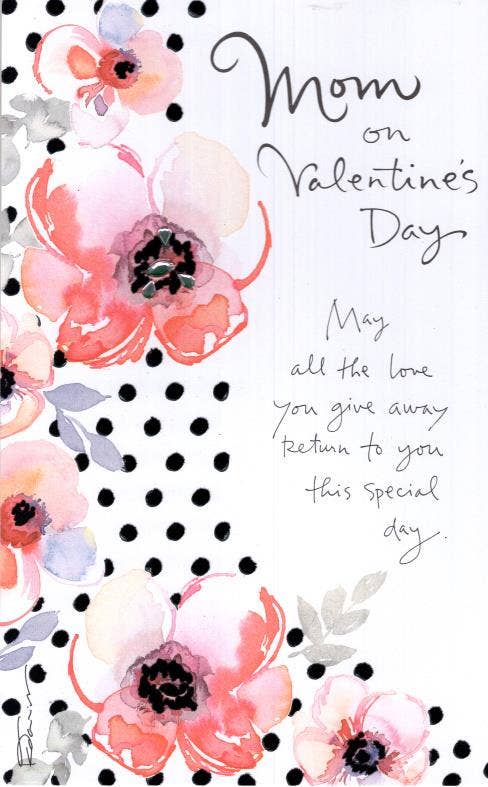 Mom
on
Valentine's
Day
May
all the love
you give away
return to you
this special
day.